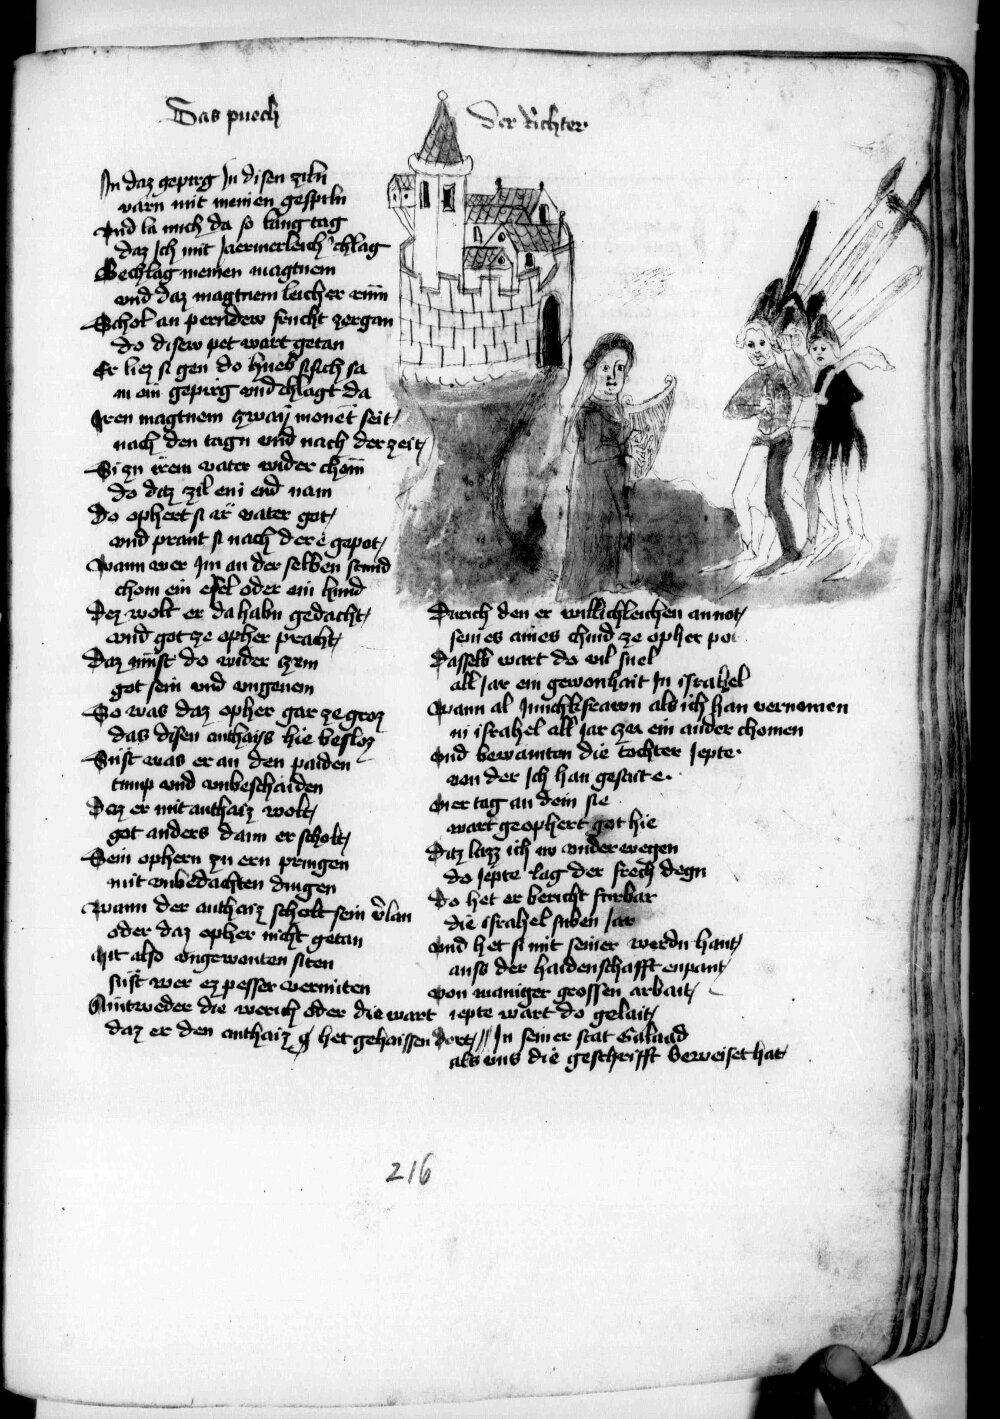 Das puech
der Richter
In daz gepirg In disen ziln
varn mit meinen gespiln
Vnd la mich da so lang tag
daz ich mit Jaemerleich chlag
Bechlag meinen magtuem
vnd daz magtuemleicher
Schol an pernder frucht zergan
do diser pet wart getan
Er liez si gen do hueb si sich sa
in ein gepirg vnd chlagt da
Iren magtuem zway monet seit
nach den tagn vnd nach der zeit
Si zu irem vater wider chom
do ditz zil ein end nam
Do ophert si ir vater got
vnd prant si nach der e gepot
Wann wer Im an der selben stund
chom ein esel oder ein hund
Dez wolt er da habn gedacht
vnd got ze opher pracht
Daz muest do wider zem
got sein vnd vngenem
So was daz opher gar ze groz
das disen anthays hie besloz
Sust was er an den paiden
tump vnd vnbeschaiden
Dez er mit anthaiz wolt
got anders dann er scholt
Sein ophern zu ern pringen
mit vnbedachten dingen
Wann der anthaiz scholt sein v̄lan
oder daz opher nicht getan
Mit also vngewonten siten
sust wer ez pesser vermiten
Aintweder die werich oder die wart
daz er den anthaiz het gehaissen dort
Durich den er willichleichen an not
seines aines chind ze opher pot
Dasselb wart do vil snel
all Jar ein gewonhait In israhel
Wann al Junchkfrawn als ich han vernomen
in israhel all Jar zu ein ander chomen
Vnd bewainten die tochter Jepte
von der Ich han gesait e
vier tag an dem sie
wart geophert got hie
Ditz lazz ich vnder wegen
do Jepte lag der frech degn
Do het er bericht furbar
die israhel siben Jar
Vnd het si mit seiner werdn hant
auss der haidenschafft enpant
Von maniger grossen arbait
iepte wart do gelait
In seiner stat Galaad
als vns die geschrifft beweiset hat
216